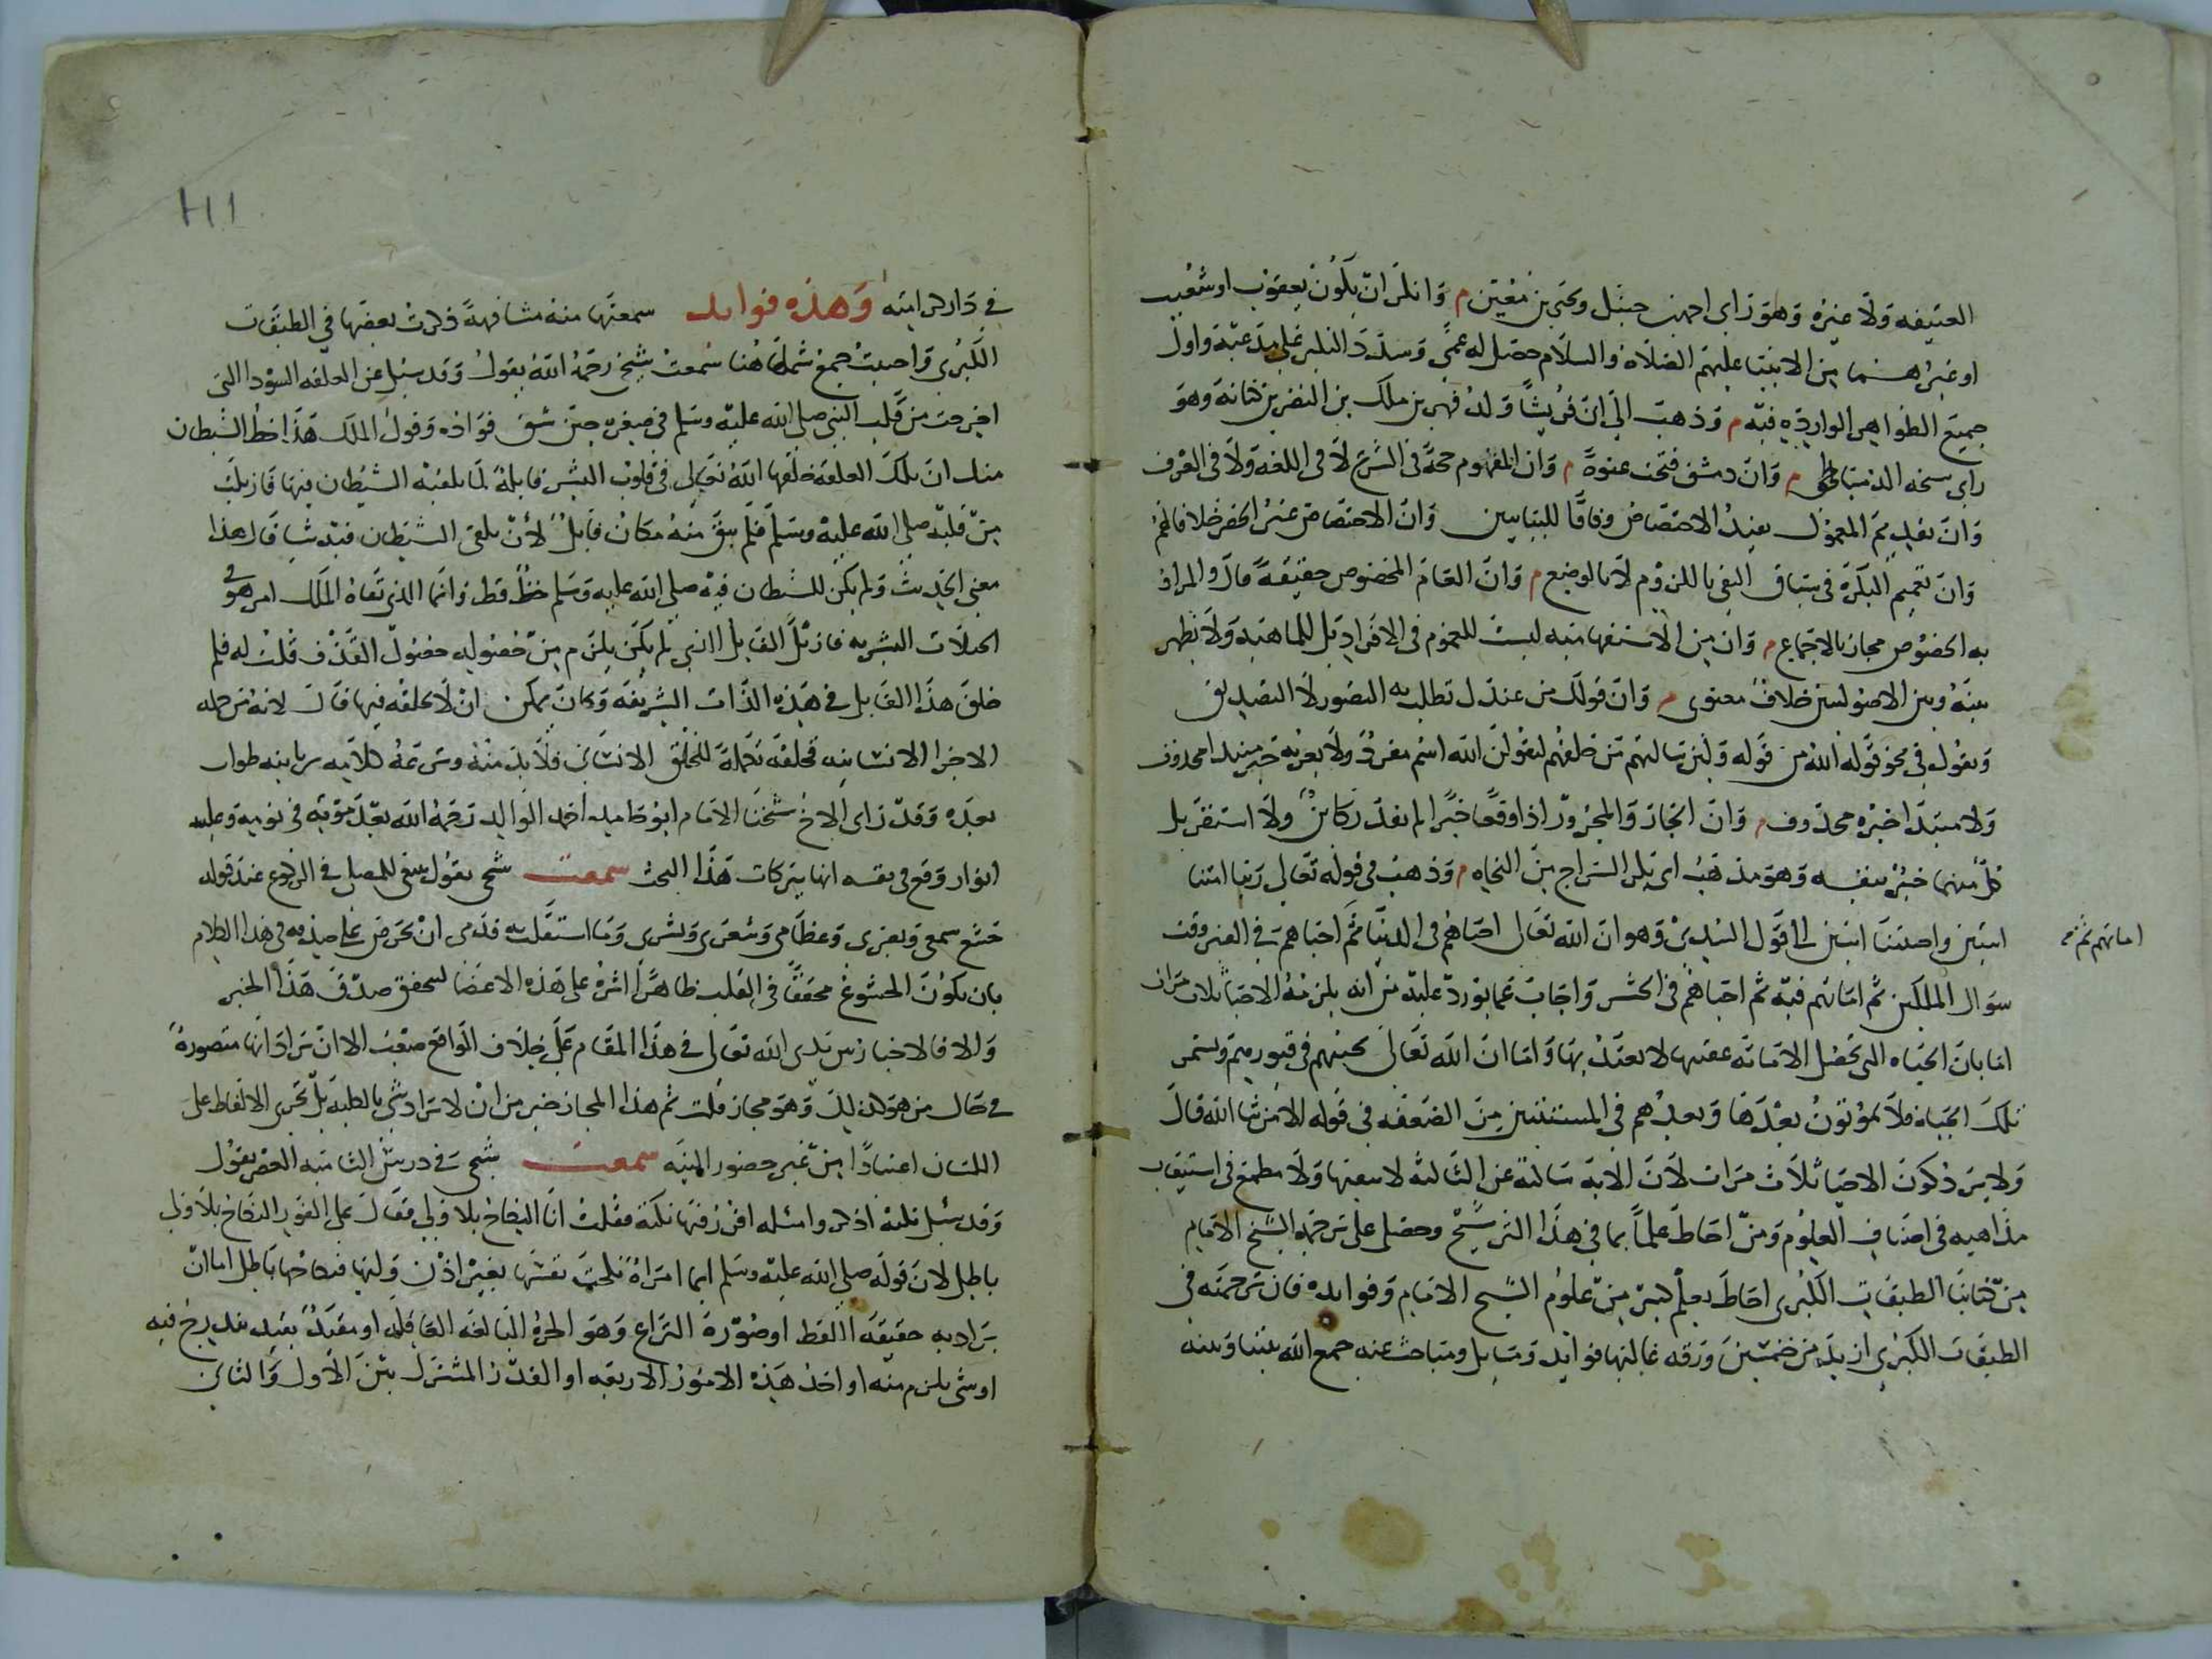 العتيقه ولا غيره وهو راي احمد بن حنبل ويحيى بن معين م وانكر ان يكون يعقوب او شعيب
او غيرهما من الانبيا عليهم الصلاة والسلام حصل له عمى وسدد النكير على مدعيه واول
جميع الظواهر الوارده فيه م وذهب الى ان قريشا ولد فهر بن ملك بن النضر بن كنانة وهو
راي شيخه الدمياطى م وان دمشق فتحت عنوة م وان المفهوم حجة فى الشرع لا فى اللغة ولا فى العرف
وان تقديم المعمول يفيد الاختصاص وفاقا للبيانيين وان الاختصاص غير الحصر خلافا لهم
وان تعميم النكرة فى سياق النفى باللزوم لا بالوضع م وان العام المخصوص حقيقة قال والمراد
به الخصوص مجاز بالاجماع م وان من الاستفهامية ليست للعموم فى الافراد بل للماهية ولا يظهر
بينه وبين الاصوليين خلاف معنوى م وان قولك من عندك تطلب به التصور لا التصديق
ويقول فى نحو قوله الله من قوله ولئن سالتهم من خلقهم ليقولن الله اسم مفرد ولا يعربه خبر مبتدا محذوف
ولا مبتدا خبره محذوف م وان الجار والمجرور اذا وقعا خبرا لم يقدر كاين ولا استقر بل
كل منهما خبر بنفسه وهو مذهب ابى بكر السراج من النحاه م وذهب فى قوله تعالى ربنا امتنا
اثنتين واحييتنا اثنتين الى قول السدى وهو ان الله تعالى احياهم فى الدنيا ثم احياهم فى القبر وقت
اماتهم ثم صح
سؤال الملكين ثم اماتهم فيه ثم احياهم فى الحشر واجاب عما يورد عليه من انه يلزم منه الاحيا ثلاث مرات
اما بان الحياه التى تحصل الاماتة عقيبها لا يعتد بها واما ان الله تعالى يحييهم فى قبورهم ويستمر
تلك الحياة فلا يموتون بعدها ويعدهم فى المستثنين من الصعقه فى قوله الا من شا الله قال
ولا يرد كون الاحيا ثلاث مرات لان الاية ساكتة عن الثالثه لا تنفيها ولا مطمع فى استيعاب
مذاهبه فى اصناف العلوم ومن احاط علما بما فى هذا الترشيح وحصل على ترجمة الشيخ الامام
من كتابنا الطبقات الكبرى احاط بعلم كبير من علوم الشيخ الامام وفوايده فان ترجمته فى
الطبقات الكبرى ازيد من خمسين ورقه غالبها فوايد ومسايل ومباحث عنه جمع الله بيننا وبينه
فى دار كرامته وهذه فوايد سمعتها منه مشافهة ذكرت بعضها فى الطبقات
الكبرى واحببت جمع شملها هنا سمعت شيخى رحمه الله يقول وقد سئل عن العلقه السودا التى
اخرجت من قلب النبى صلى الله عليه وسلم فى صغره حين شق فواده وقول الملك هذا حظ الشيطان
منك ان تلك العلقة خلقها الله تعالى فى قلوب البشر قابلة لما يلقيه الشيطان فيها فازيلت
من قلبه صلى الله عليه وسلم فلم يبق منه مكان قابل لأن يلقى الشيطان فيه شيا قال هذا
معنى الحديث ولم يكن للشيطان فيه صلى الله عليه وسلم حظ قط وانما الذى نفاه الملك امر هو فى
الجبلات البشريه فازيل القابل الذى لم يكن يلزم من حصوله حصول القذف قلت له فلم
خلق هذا القابل فى هذه الذات الشريفه وكان يمكن ان لا يخلقه فيها قال لانه من جمله
الاجزا الانسانيه فخلقه تكملة للخلق الانسانى فلا بد منه ونزعه كرامه ربانيه طرات
بعده وقد راى الاخ شيخنا الامام ابو حامد احمد الوالد رحمه الله بعد موته فى نومه وعليه
انوار وقع فى نفسه انها ببركات هذا البحث سمعت شيخى يقول ينبغى للمصلى فى الركوع عند قوله
خشع سمعى وبصرى وعظامى وشعرى وبشرى وما استقلت به قدمى ان يحرص على صدقه فى هذا الكلام
بان يكون الخشوع محققا فى القلب ظاهرا اثره على هذه الاعضا ليتحقق صدق هذا الخبر
والا فالاخبار بين يدى الله تعالى فى هذا المقام على خلاف الواقع صعب الا ان يراد انها متصورة
فى حال من هو كذلك وهو مجاز قلت ثم هذا المجاز خير من ان لا يراد شى بالكلية بل تجرى الالفاظ على
اللسان اعتيادا من غير حضور النيه سمعت شيخى فى درس الشاميه العصر يقول
وقد سئل نكتة اذكر وامسئله افترقتها نكتة فقلت انا النكاح بلا ولى فقال على الفور النكاح بلا ولى
باطل لان قوله صلى الله عليه وسلم ايما امراة نكحت نفسها بغير اذن وليها فنكاحها باطل اما ان
يراد به حقيقة اللفظ او صورة النزاع وهو الحرة البالغه العاقله او مقيد بقيد يندرج فيه
او شى يلزم منه او احد هذه الامور الاربعه او القدر المشترك بين الاول والثانى